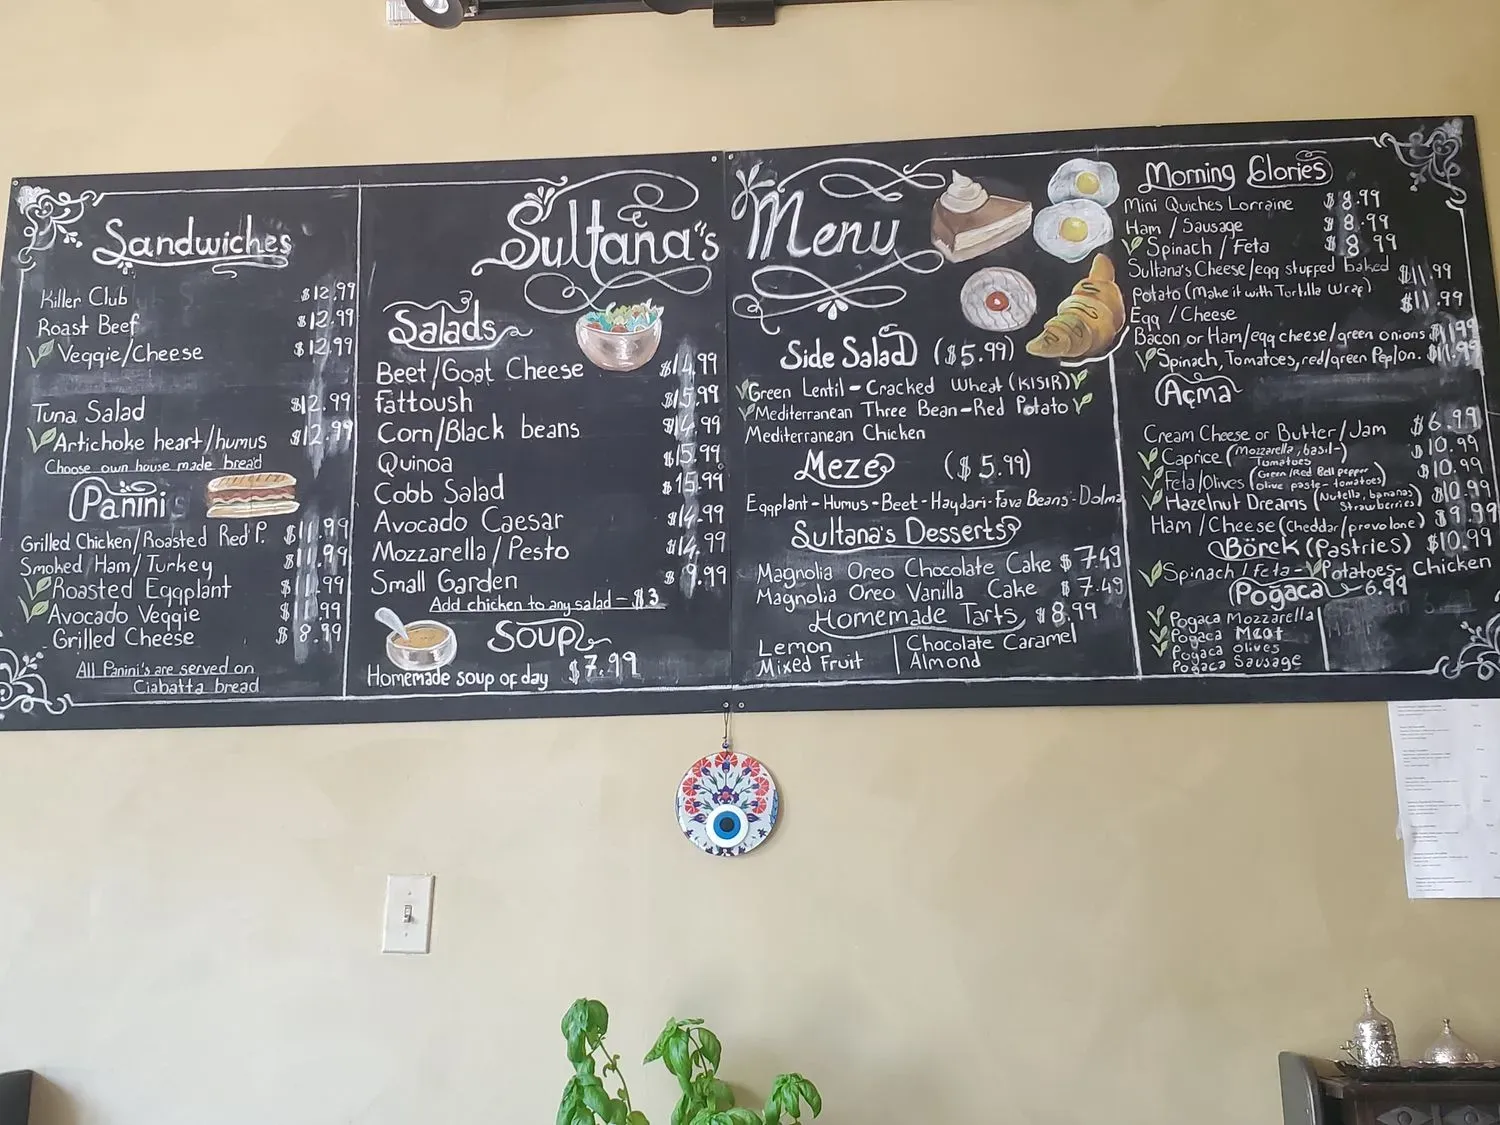 Sultana's Menu
Sandwiches
Killer Club $12.99
Roast Beef $12.99
Veggie/Cheese $12.99
Tuna Salad $12.99
Artichoke heart/humus $12.99
Choose own house made bread
Panini
Grilled Chicken/Roasted Red P. $11.99
Smoked Ham/Turkey $11.99
Roasted Eggplant $11.99
Avocado Veggie $11.99
Grilled Cheese $8.99
All Panini's are served on
Ciabatta bread
Salads
Beet/Goat Cheese $14.99
Fattoush $15.99
Corn/Black beans $14.99
Quinoa $15.99
Cobb Salad $15.99
Avocado Caesar $14.99
Mozzarella/Pesto $14.99
Small Garden $9.99
Add chicken to any salad - $3
Soup
Homemade soup of day $7.99
Side Salad ($5.99)
Green Lentil - Cracked Wheat (KISIR)
Mediterranean Three Bean - Red Potato
Mediterranean Chicken
Meze ($5.99)
Eggplant - Humus - Beet - Haydari - Fava Beans - Dolma
Sultana's Desserts
Magnolia Oreo Chocolate Cake $7.49
Magnolia Oreo Vanilla Cake $7.49
Homemade Tarts $8.99
Lemon Chocolate Caramel
Mixed Fruit Almond
Morning Glories
Mini Quiches Lorraine $8.99
Ham / Sausage $8.99
Spinach / Feta $8.99
Sultana's Cheese/egg stuffed baked $11.99
potato (Make it with Tortilla Wrap)
Egg / Cheese $11.99
Bacon or Ham/egg cheese/green onions $11.99
Spinach, Tomatoes, red/green Pep/on. $11.99
Açma
Cream Cheese or Butter/Jam $6.99
Caprice (Mozzarella, basil- Tomatoes $10.99
Feta/Olives (Green/Red Bell pepper olive paste-tomatoes) $10.99
Hazelnut Dreams (Nutella, bananas Strawberries) $10.99
Ham/Cheese (Cheddar/provolone) $9.99
Börek (Pastries) $10.99
Spinach / Feta - Potatoes - Chicken
Pogaca 6.99
Pogaca Mozzarella
Pogaca Meat
Pogaca olives
Pogaca Sausage